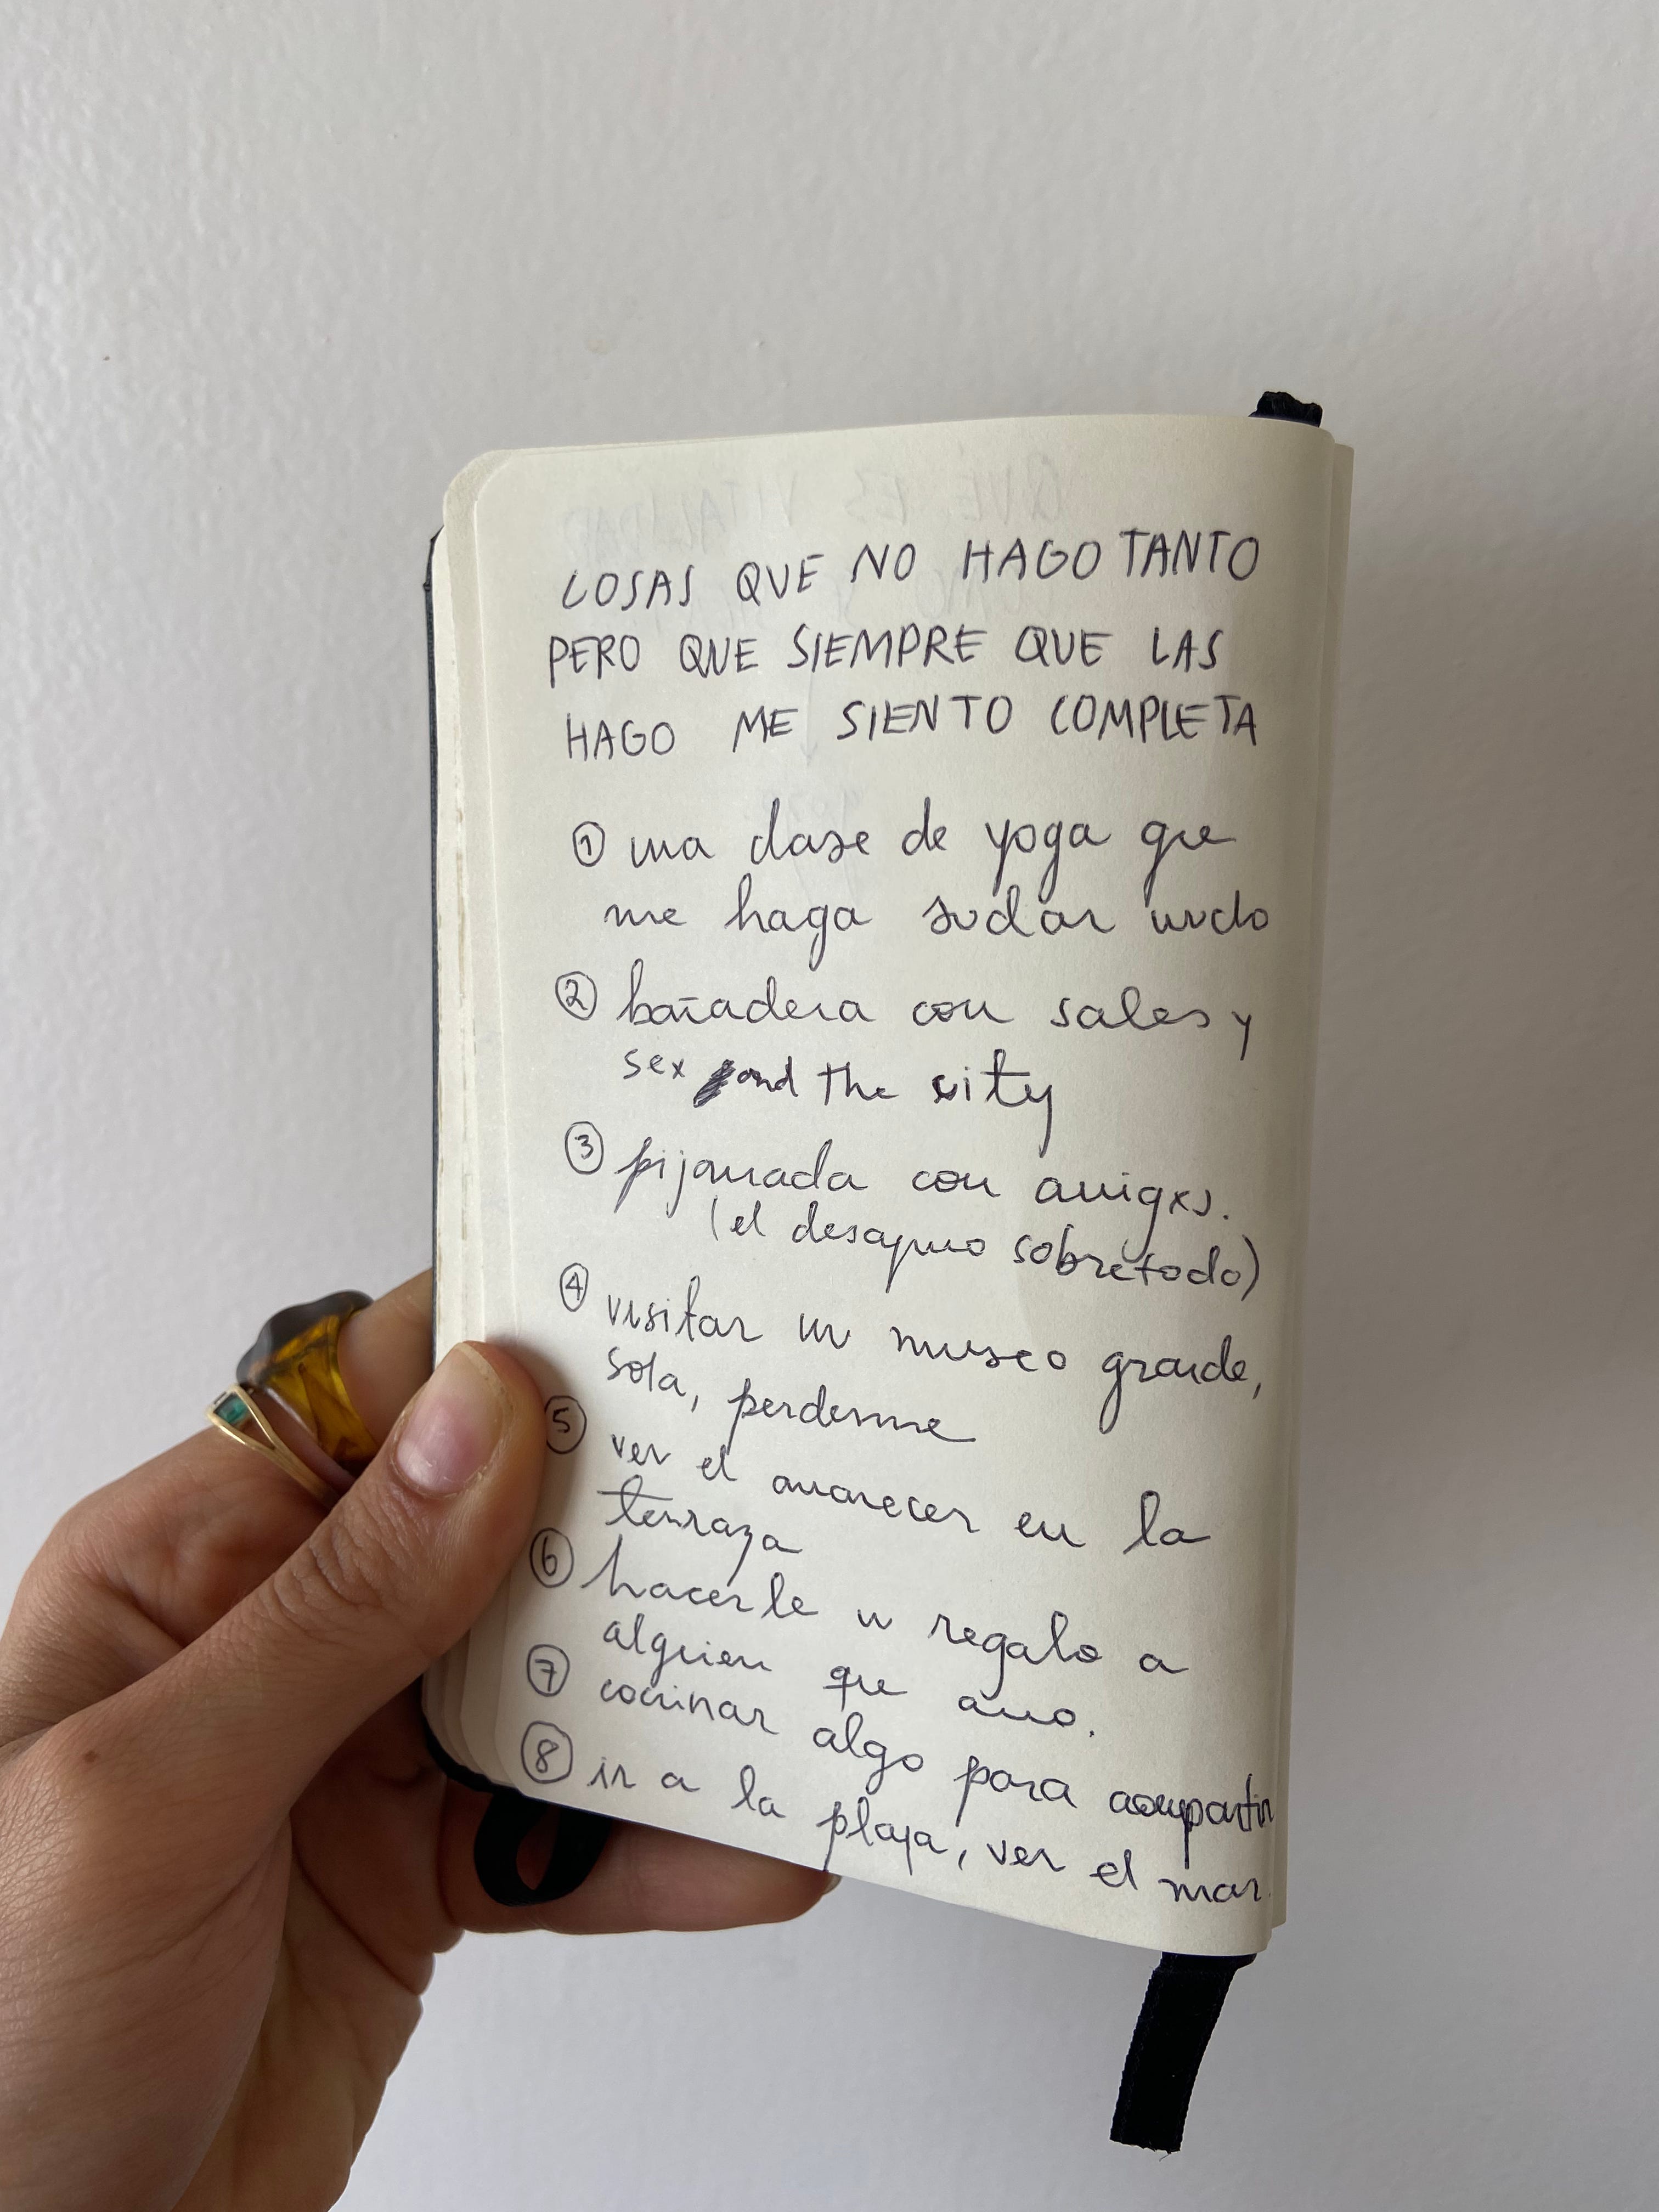 COSAS QUE NO HAGO TANTO
PERO QUE SIEMPRE QUE LAS
HAGO ME SIENTO COMPLETA
① una clase de yoga que
me haga sudar mucho
② bañadera con sales y
sex and the city
③ pijamada con amigxs.
(el desayuno sobretodo)
④ visitar un museo grande,
sola, perderme
⑤ ver el amanecer en la
terraza
⑥ hacerle un regalo a
alguien que amo.
⑦ cocinar algo para compartir
⑧ ir a la playa, ver el mar.